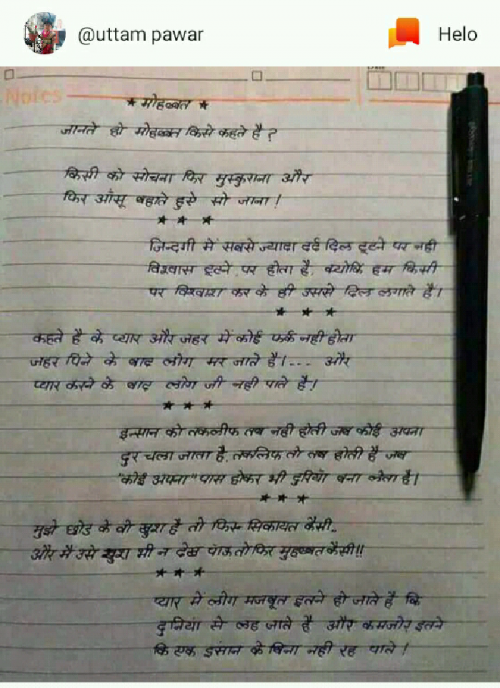 @uttam pawar
Helo
Notes
★ मोहब्बत ★
जानते हो मोहब्बत किसे कहते है ?
किसी को सोचना फिर मुस्कुराना और
फिर आँसू बहाते हुसे सो जाना !
★ ★ ★
जिन्दगी में सबसे ज्यादा दर्द दिल टूटने पर नही
विश्वास टूटने पर होता है, क्योंकि हम किसी
पर विश्वाश कर के ही उससे दिल लगाते है।
★ ★ ★
कहते है के प्यार और जहर में कोई फर्क नही होता
जहर पिने के बाद लोग मर जाते है।.... और
प्यार करने के बाद लोग जी नही पाते है!
★ ★ ★
इन्सान को तकलीफ तब नही होती जब कोई अपना
दुर चला जाता है, तकलिफ तो तब होती है जब
"कोई अपना" पास होकर भी दुरियाँ बना लेता है।
★ ★ ★
मुझे छोड के वो खुश है तो फिर सिकायत कैसी..
और मै उसे खुश भी न देख पाऊ तो फिर मुहब्बत कैसी!!
★ ★ ★
प्यार में लोग मजबूत इतने हो जाते है कि
दुनियाँ से लड जाते है और कमजोर इतने
कि एक इंसान के बिना नही रह पाते !